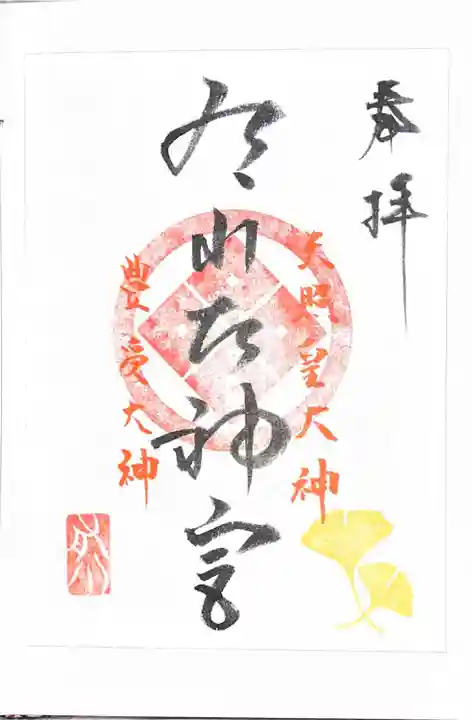 奉拝
天照皇大神
徳山大神宮
豊受大神